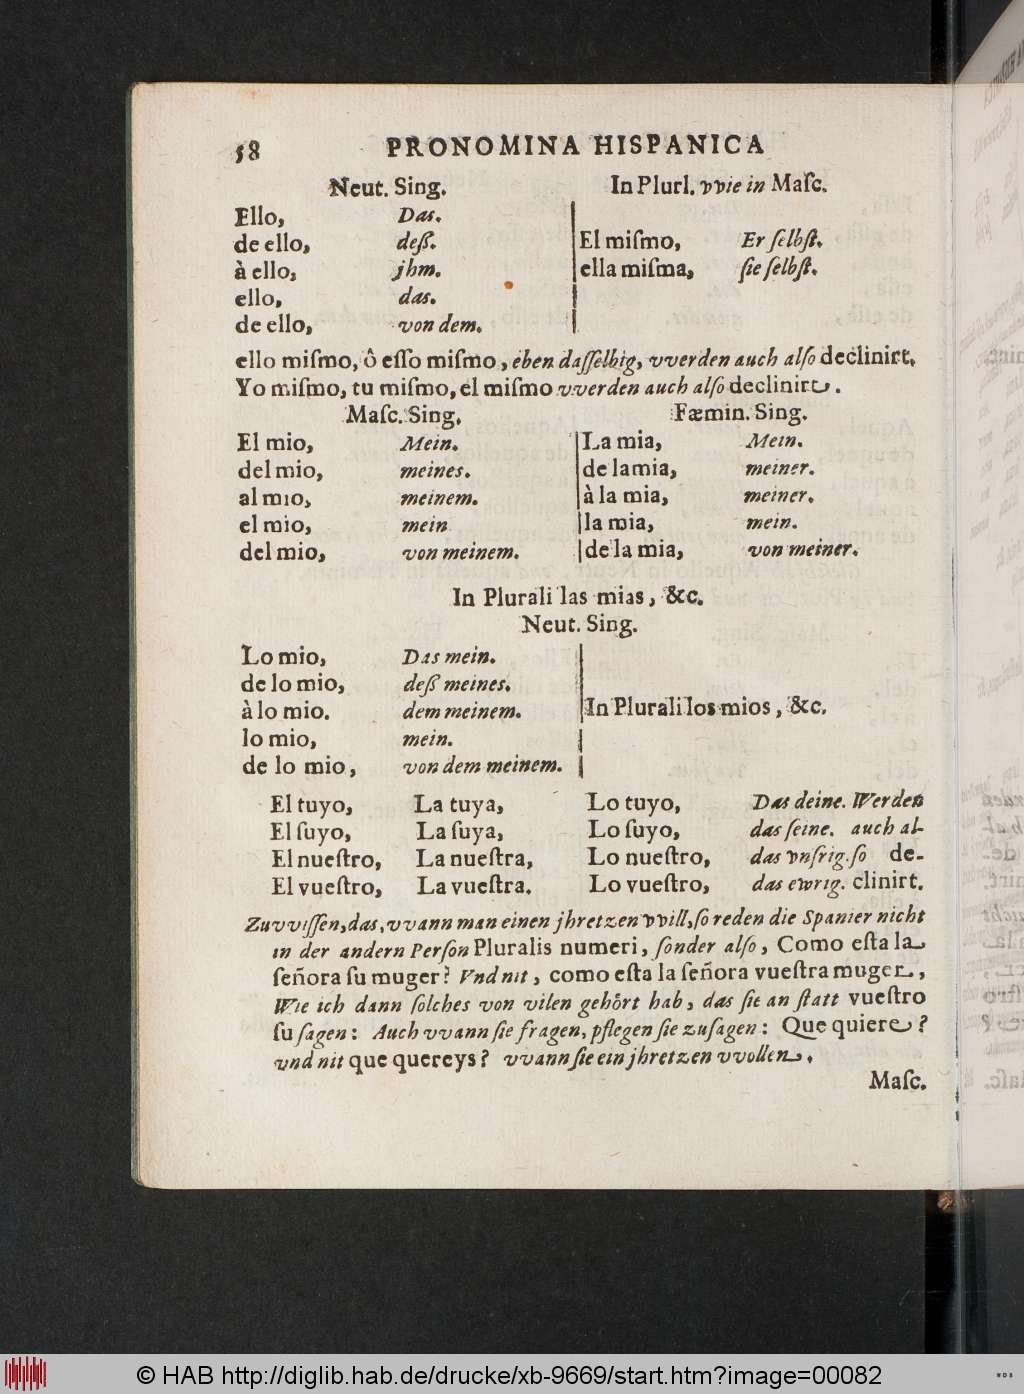 58 PRONOMINA HISPANICA
Neut. Sing. In Plurl. vvie in Maſc.
Ello, Das.
de ello, deß. El miſmo, Er ſelbſt.
à ello, jhm. ella miſma, ſie ſelbſt.
ello, das.
de ello, von dem.
ello miſmo, ô eſſo miſmo, eben daſſelbig, vverden auch alſo declinirt.
Yo miſmo, tu miſmo, el miſmo vverden auch alſo declinirt.
Maſc. Sing. Fæmin. Sing.
El mio, Mein. La mia, Mein.
del mio, meines. de la mia, meiner.
al mio, meinem. à la mia, meiner.
el mio, mein la mia, mein.
del mio, von meinem. de la mia, von meiner.
In Plurali las mias, &c.
Neut. Sing.
Lo mio, Das mein.
de lo mio, deß meines.
à lo mio. dem meinem. In Plurali los mios, &c.
lo mio, mein.
de lo mio, von dem meinem.
El tuyo, La tuya, Lo tuyo, Das deine. Werden
El ſuyo, La ſuya, Lo ſuyo, das ſeine. auch al-
El nueſtro, La nueſtra, Lo nueſtro, das vnſrig. ſo de-
El vueſtro, La vueſtra. Lo vueſtro, das ewrig. clinirt.
Zuvviſſen, das, vvann man einen jhretzen vvill, ſo reden die Spanier nicht
in der andern Perſon Pluralis numeri, ſonder alſo, Como eſta la
ſeñora ſu muger? Vnd nit, como eſta la ſeñora vueſtra muger,
Wie ich dann ſolches von vilen gehört hab, das ſie an ſtatt vueſtro
ſu ſagen: Auch vvann ſie fragen, pflegen ſie zuſagen: Que quiere?
vnd nit que quereys? vvann ſie ein jhretzen vvollen.
Maſc.
© HAB http://diglib.hab.de/drucke/xb-9669/start.htm?image=00082